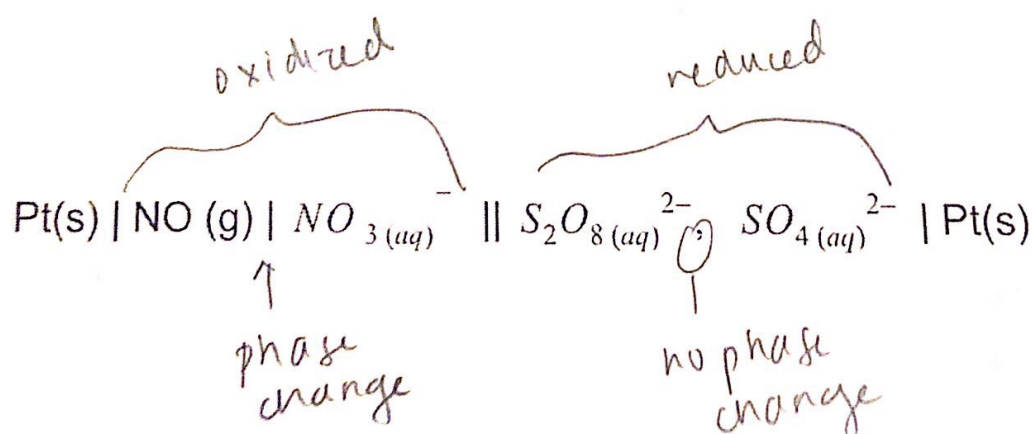 oxidized reduced
Pt(s) | NO (g) | NO₃(aq)⁻ || S₂O₈(aq)²⁻, SO₄(aq)²⁻ | Pt(s)
phase change
no phase change